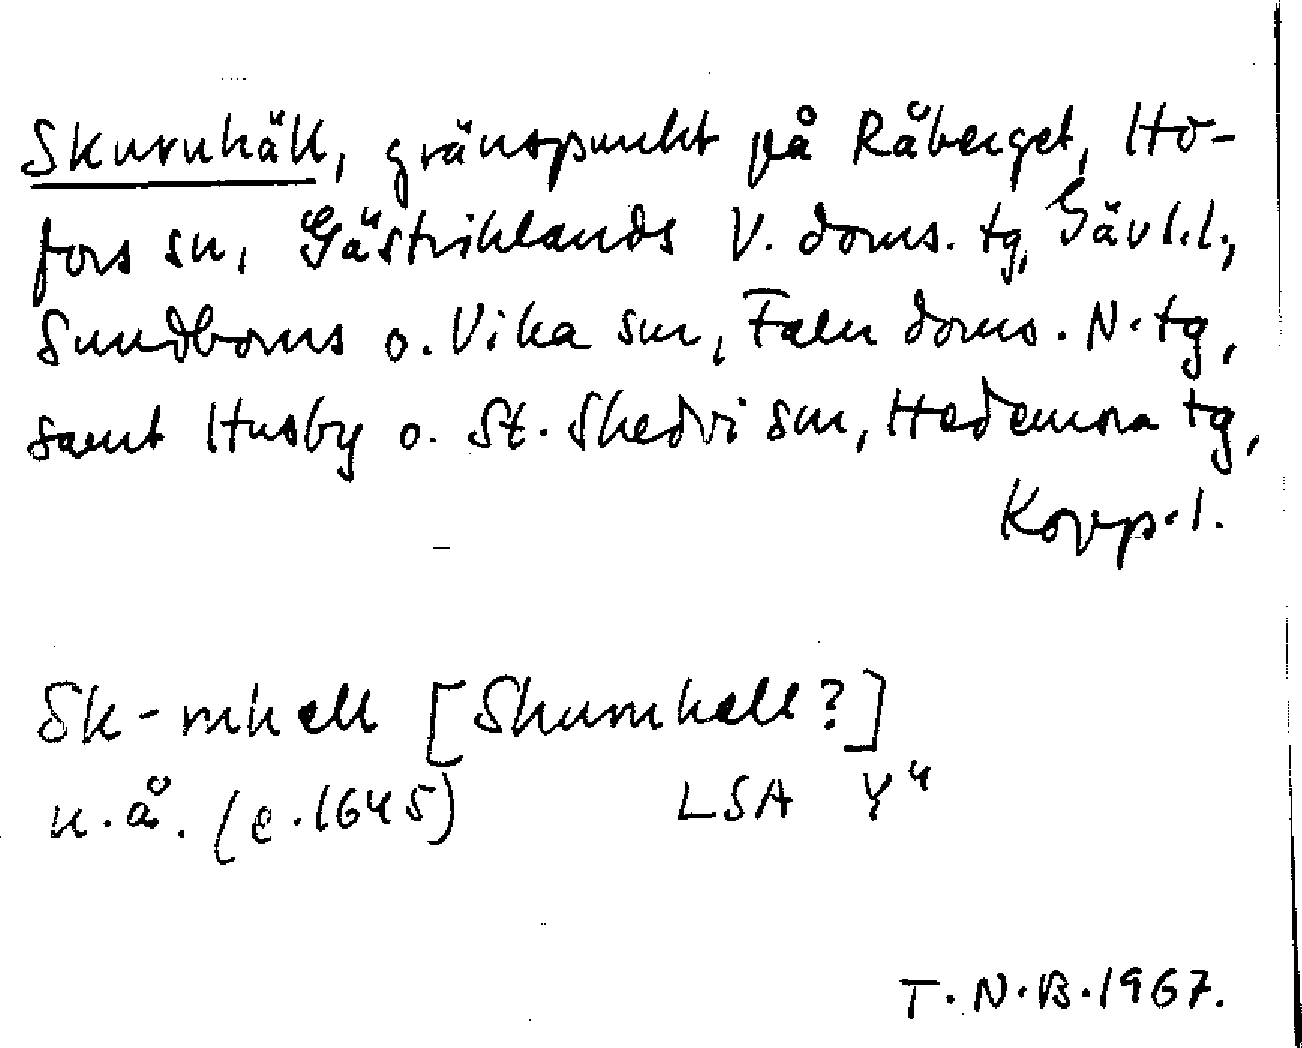 Skuruhäll, gränspunkt på Råberget, Ho-
fors sn, Gästriklands V. doms. tg, Gävl.l.,
Sundborns o. Vika snr, Falu doms. N. tg,
samt Husby o. St. Skedvi snr, Hedemora tg,
Kopp.l.
Sk-rnhell [Skurnhell?]
u.å. (c. 1645) LSA Y⁴
T.N.B. 1967.